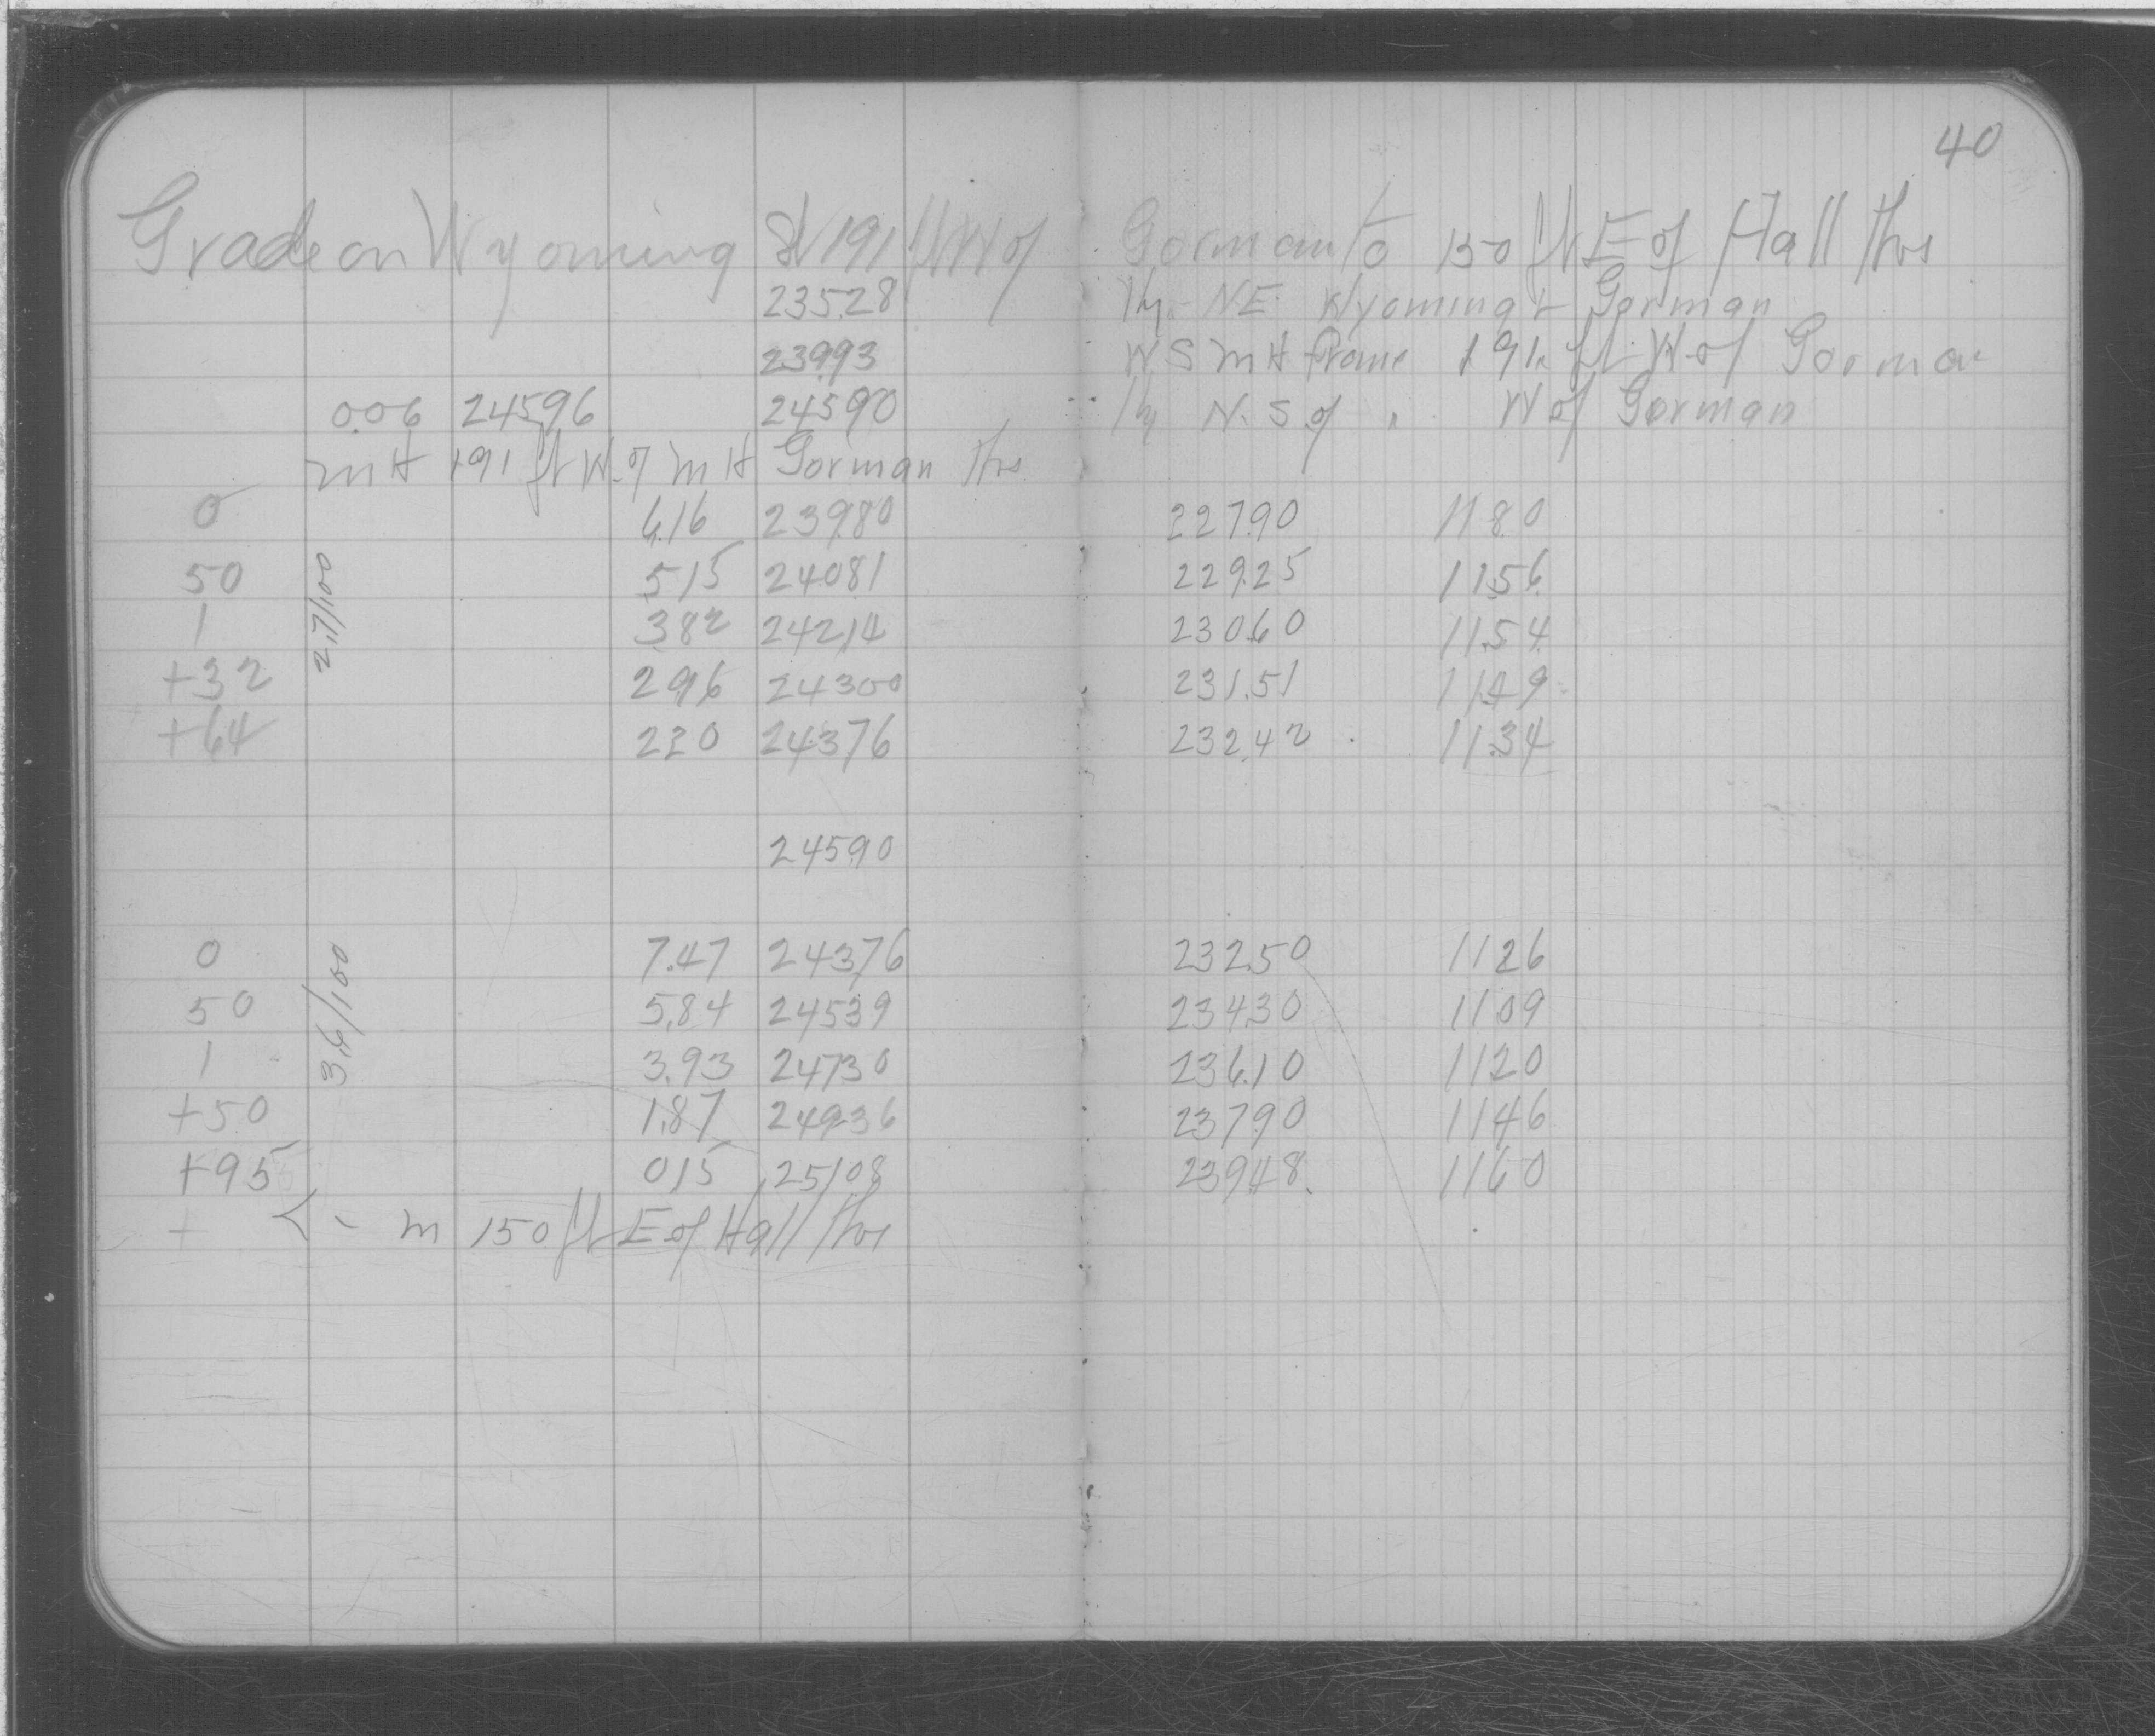 40
Grade on Wyoming St 191 ft W of Gorman to 150 ft E of Hall Thrs
235.28 Hy. NE Wyoming & Gorman
239.93 W S M H frame 191 ft W of Gorman
0.06 245.96 245.90 Hy N. S of " W of Gorman
M H 191 ft W. of M H Gorman Thrs
0 6.16 239.80 227.90 11.80
50 5.15 240.81 229.25 11.56
2.7/100
1 3.82 242.14 230.60 11.54
+32 2.96 243.00 231.51 11.49
+64 2.20 243.76 232.42 11.34
245.90
0 7.47 243.76 232.50 11.26
50 5.84 245.39 234.30 11.09
3.6/100
1 3.93 247.30 236.10 11.20
+50 1.87 249.36 237.90 11.46
+95 0.15 251.08 239.48 11.60
+ < - M 150 ft E of Hall Thrs